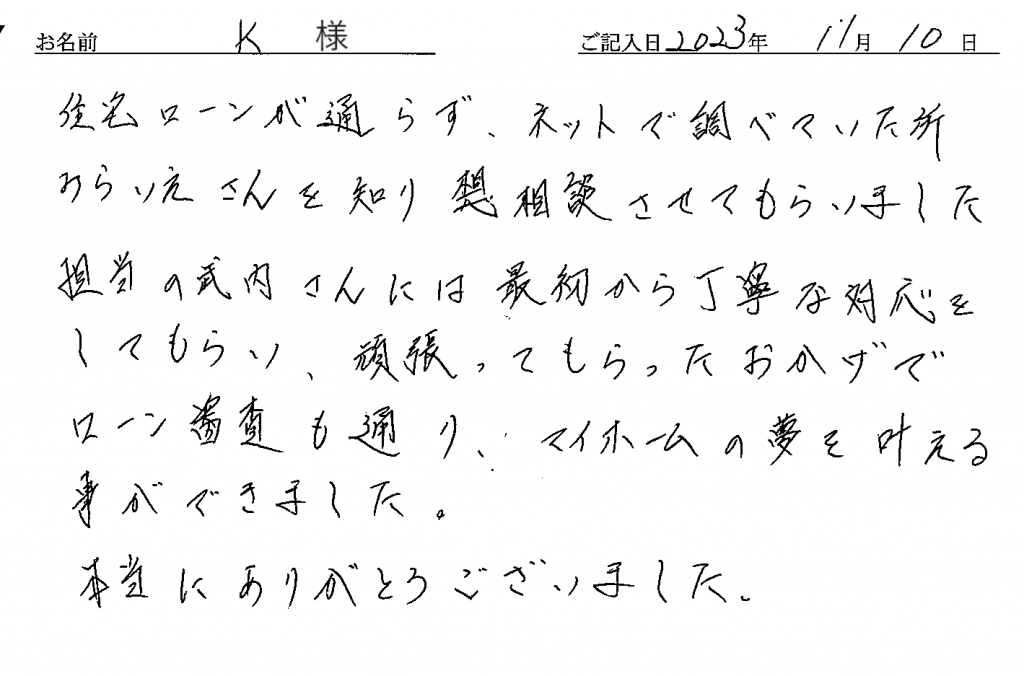 お名前 K 様 ご記入日 2023年 11月 10日
住宅ローンが通らず、ネットで調べていた所
みらいえさんを知り 想 相談させてもらいました
担当の武内さんには最初から丁寧な対応を
してもらい、頑張ってもらったおかげで
ローン審査も通り、マイホームの夢を叶える
事ができました。
本当にありがとうございました。